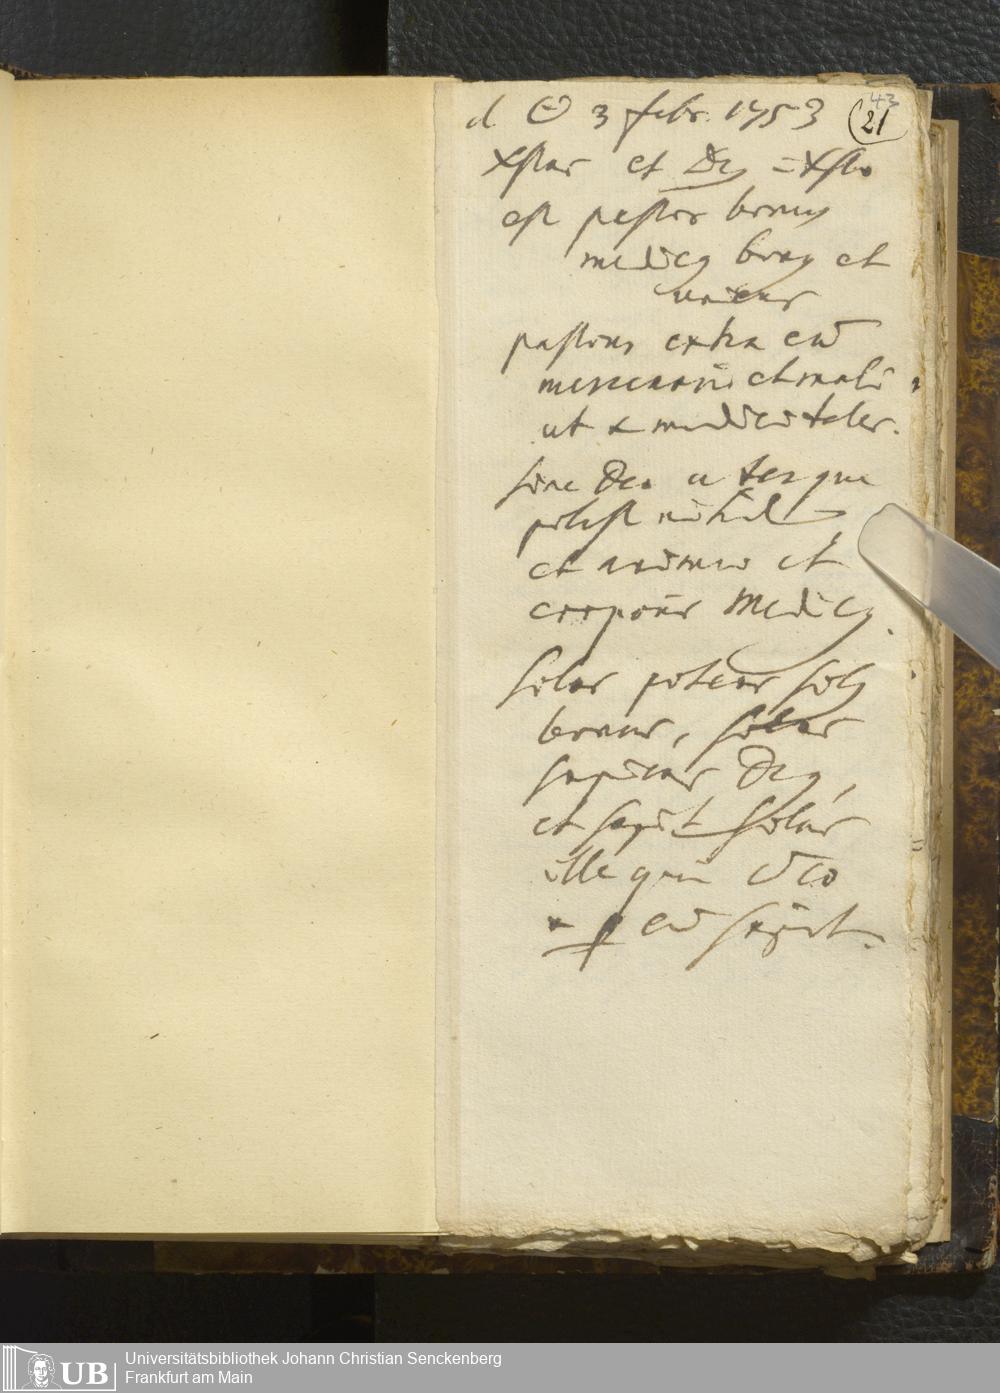 43
d. ☉ 3 febr. 1753
21
Xstus et Ds = Xsto
est pastor bonus
medicus bonus et
unicus
pastores extra eum
mercenarii et mali
ut & medici tales.
sine Deo uterque
potest nihil
et animae et
corporis Medicus.
solus potens solus
bonus, solus
sapiens Deus,
et sapit solus
ille qui in eo
& p eum sapit.
UB
Universitätsbibliothek Johann Christian Senckenberg
Frankfurt am Main